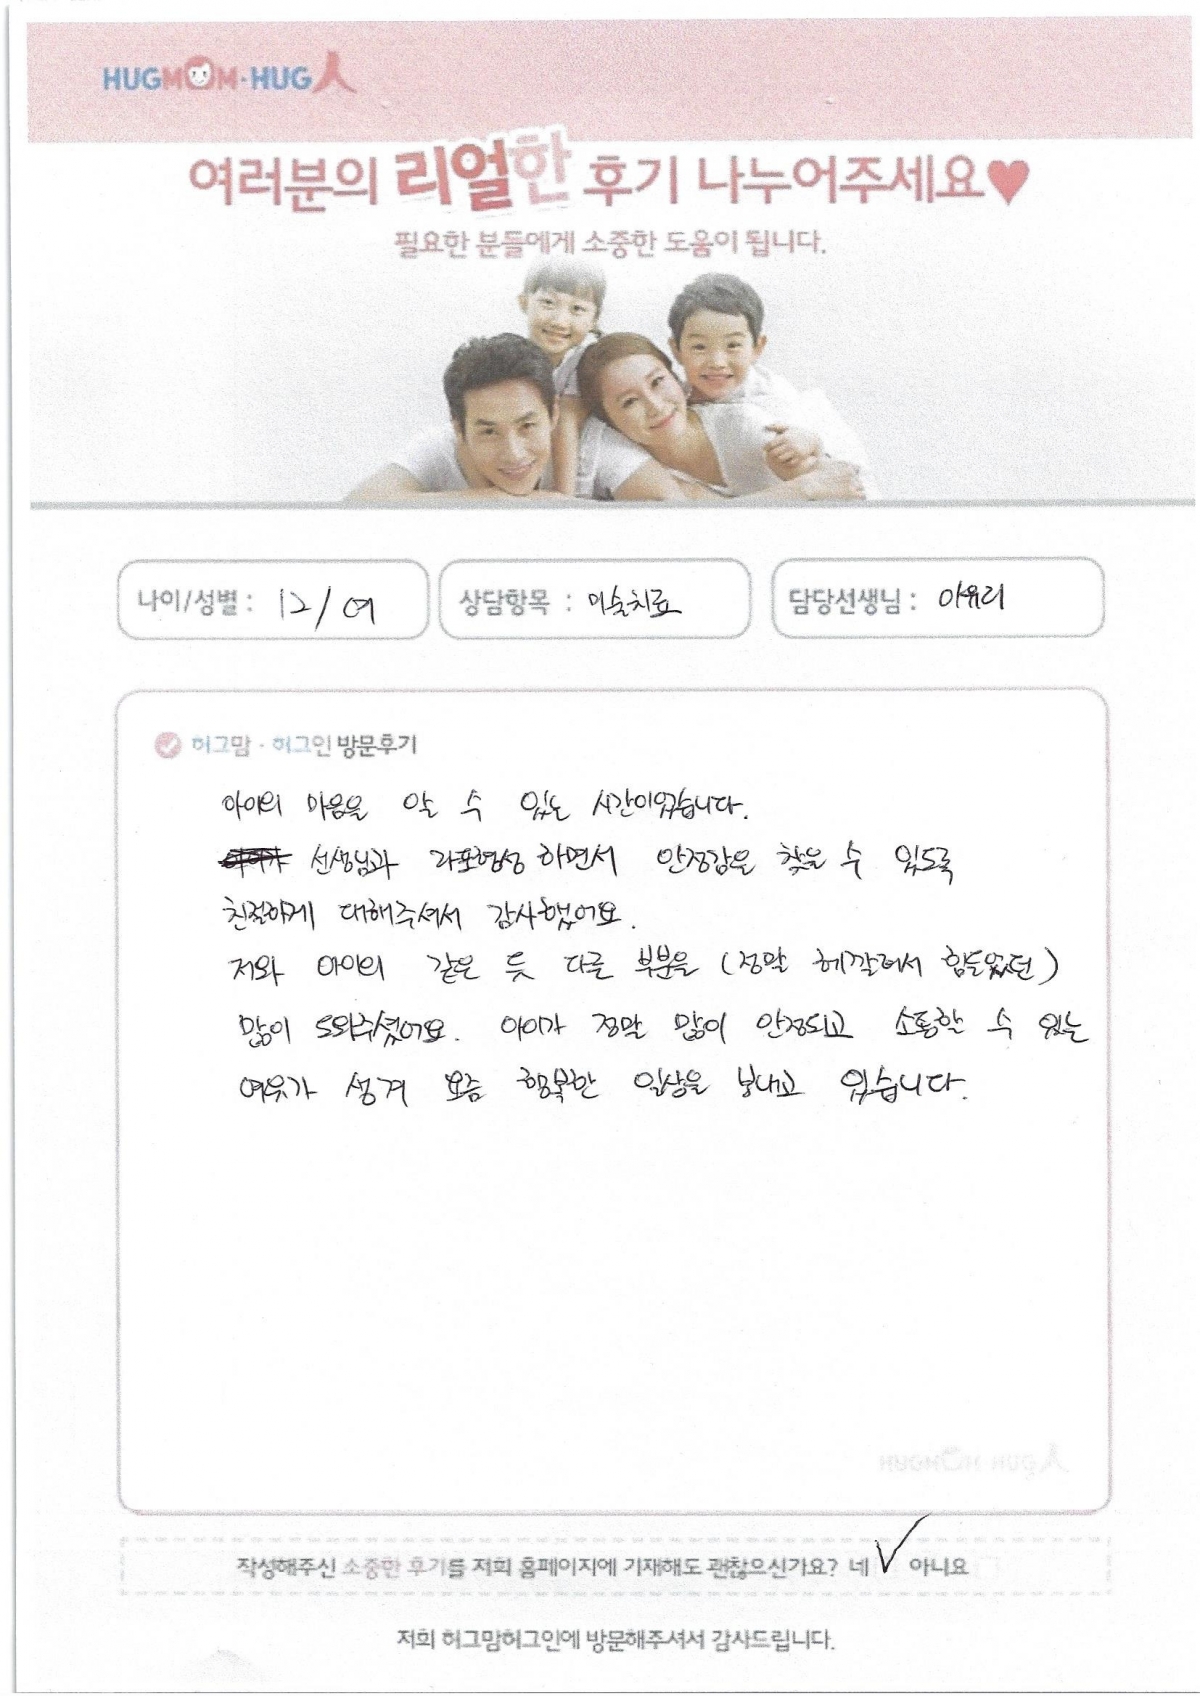 HUGMOM·HUG人
여러분의 리얼한 후기 나누어주세요♥
필요한 분들에게 소중한 도움이 됩니다.
나이/성별 : 12/여 상담항목 : 미술치료 담당선생님 : 이유리
허그맘 · 허그인 방문후기
아이의 마음을 알 수 있는 시간이었습니다.
선생님과 라포형성 하면서 안정감을 찾을 수 있도록
친절하게 대해주셔서 감사했어요.
저와 아이의 같은 듯 다른 부분을 (정말 헤깔려서 힘들었던)
많이 도와주셨어요. 아이가 정말 많이 안정되고 소통할 수 있는
여유가 생겨 요즘 행복한 일상을 보내고 있습니다.
작성해주신 소중한 후기를 저희 홈페이지에 기재해도 괜찮으신가요? 네 ✓ 아니요
저희 허그맘허그인에 방문해주셔서 감사드립니다.